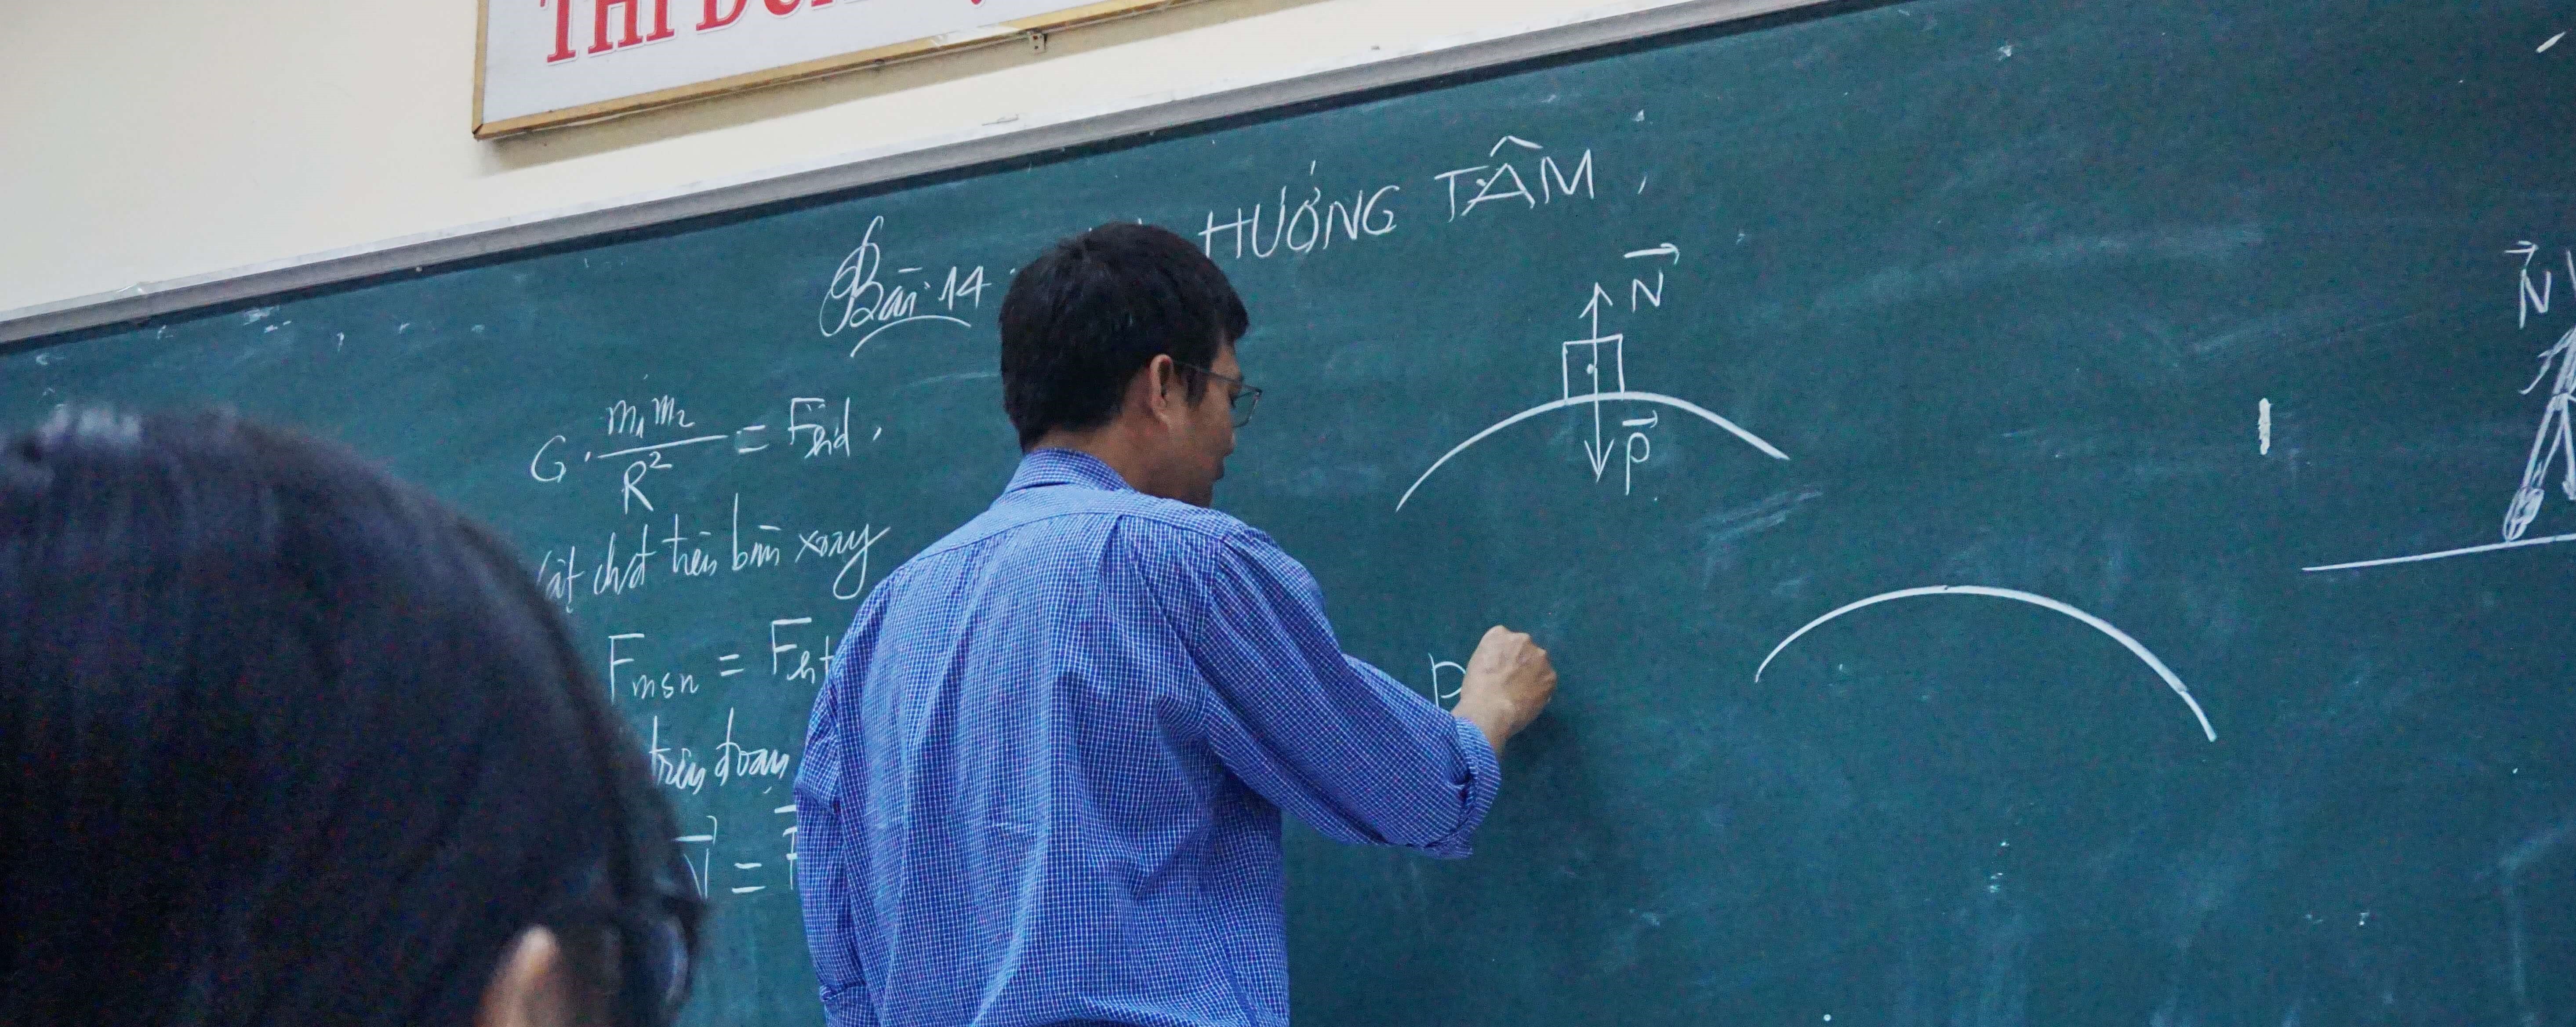 THI ĐUA
Bài 14 HƯỚNG TÂM
G. m₁m₂ / R² = Fhd
vật chất trên bàn xoay
Fmsn = Fht
trên đoạn
N =
N
P
P
N